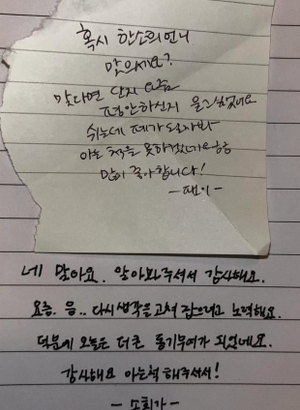 혹시 한소희언니
맞으세요?
맞다면 단지 요즘
평안하신지 묻고싶었네요
쉬는데 폐가 될까봐
아는 척을 못하겠네요ㅎㅎ
많이 좋아합니다!
-팬이-
네 맞아요. 알아봐주셔서 감사해요.
요즘. 음.. 다시 생각을 고쳐 잡으려고 노력해요.
덕분에 오늘은 더 큰 동기부여가 되었네요.
감사해요 아는척 해주셔서!
- 소희가 -